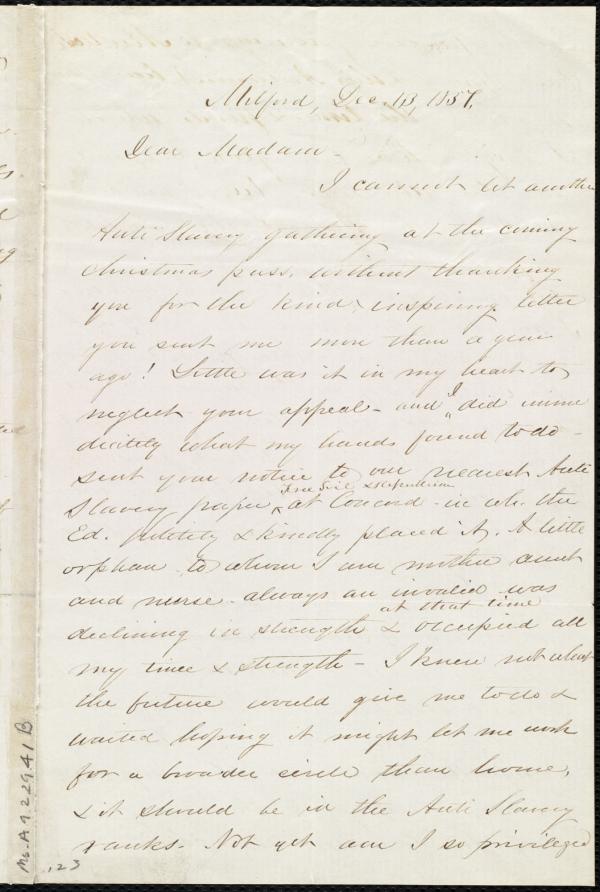 Milford, Dec. 13, 1857.
Dear Madam -
I cannot let another
Anti Slavery gathering at the coming
Christmas pass, without thanking
you for the kind & inspiring letter
you sent me more than a year
ago! Little was it in my heart to
neglect your appeal - and I did imme
diately what my hands found to do -
sent your notice to our nearest Anti
Free Soil & Republican
Slavery paper at Concord - in wh. the
Ed. politely & kindly placed it. A little
orphan to whom I am mother aunt
and nurse - always an invalid was
at that time
declining in strength & occupied all
my time & strength - I knew not what
the future would give me to do &
waited hoping it might let me work
for a broader circle than home,
& it should be in the Anti Slavery
ranks. Not yet am I so privileged
Ms. A.9.2 29.41 B
123